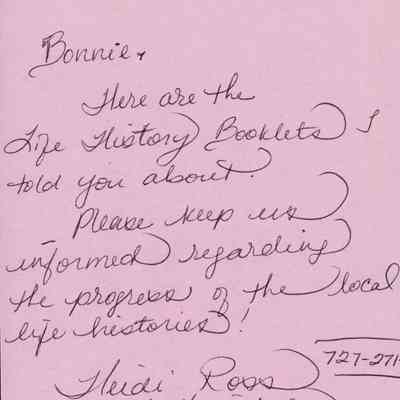 Bonnie,
Here are the
Life History Booklets I
told you about.
Please keep us
informed regarding
the progress of the local
life histories!
727-271-
Heidi Ross